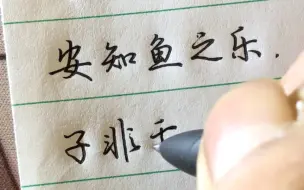 安知鱼之乐.
子非